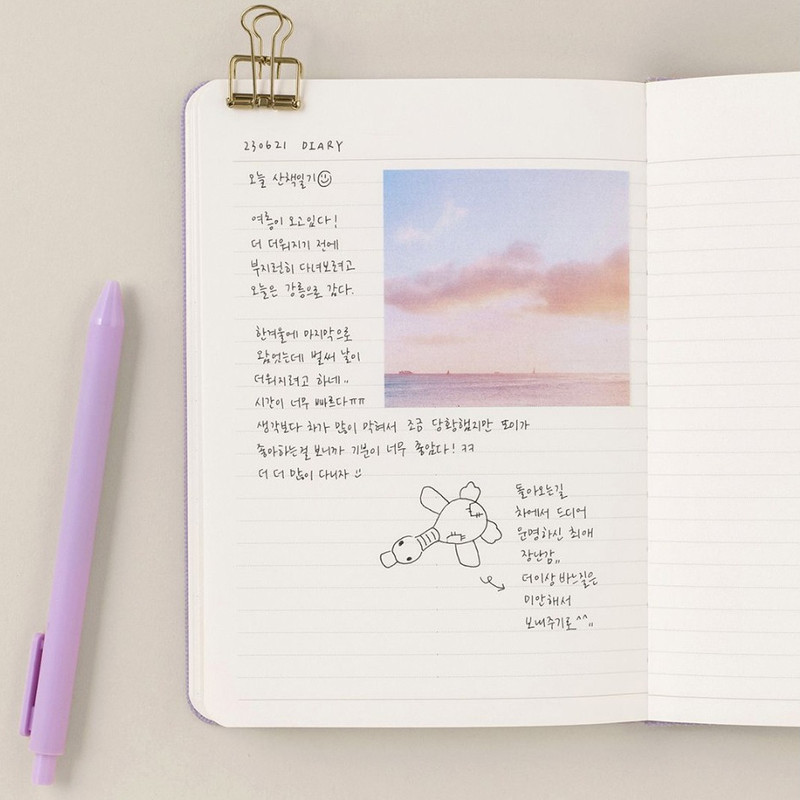 230621 DIARY
오늘 산책일기
여름이 오고있다!
더 더워지기 전에
부지런히 다녀보려고
오늘은 강릉으로 갔다.
한겨울에 마지막으로
왔었는데 벌써 날이
더워지려고 하네..
시간이 너무 빠르다ㅠㅠ
생각보다 차가 많이 막혀서 조금 당황했지만 또이가
좋아하는걸 보니까 기분이 너무 좋았다! ㅋㅋ
더 더 많이 다니자
돌아오는길
차에서 드디어
운명하신 최애
장난감..
더이상 바느질은
미안해서
보내주기로^^..